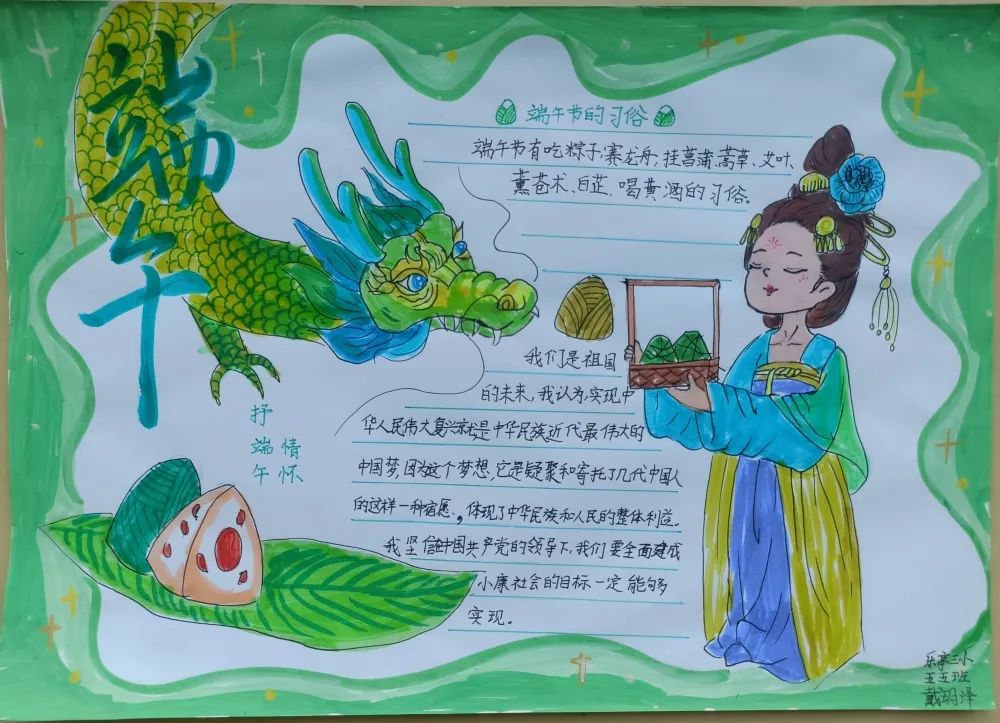 端午
端午节的习俗
端午节有吃粽子,赛龙舟,挂菖蒲、蒿草、艾叶、
薰苍术、白芷、喝黄酒的习俗。
我们是祖国
的未来,我认为实现中
华人民伟大复兴就是中华民族近代最伟大的
中国梦,因为这个梦想,它是疑聚和寄托了几代中国人
的这样一种宿愿,体现了中华民族和人民的整体利益。
我坚信在中国共产党的领导下,我们要全面建成
小康社会的目标一定能够
实现。
抒情怀
端午
乐亭三小
五五班
戴玥泽